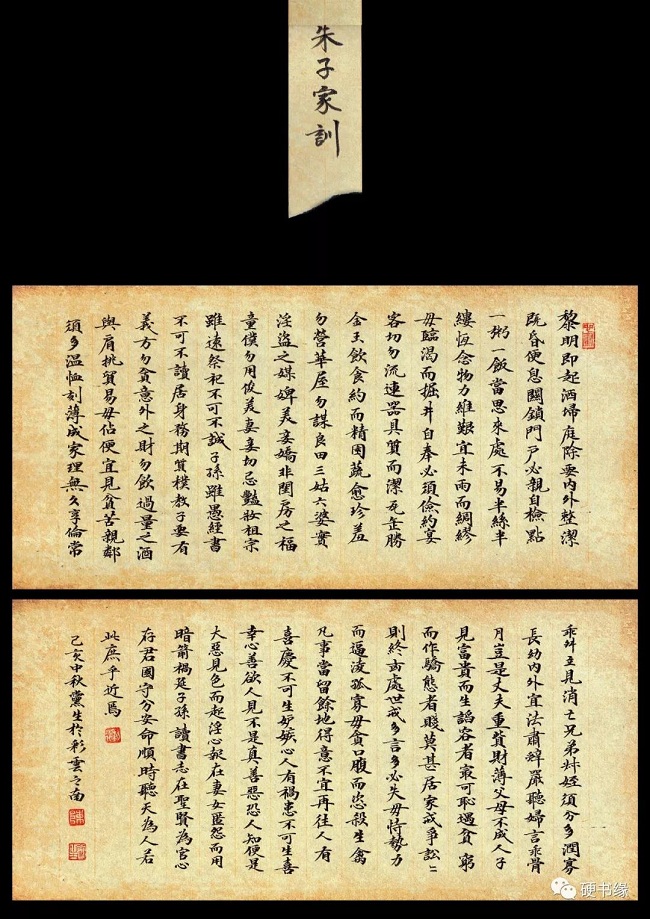 朱子家訓
黎明即起洒埽庭除要内外整潔
既昏便息關鎖門戶必親自檢點
一粥一飯當思來處不易半絲半
縷恆念物力維艱宜未雨而綢繆
毋臨渴而掘井自奉必須儉約宴
客切勿流連器具質而潔瓦缶勝
金玉飲食約而精園蔬愈珍羞
勿營華屋勿謀良田三姑六婆實
淫盜之媒婢美妾嬌非閨房之福
童僕勿用俊美妻妾切忌豔妝祖宗
雖遠祭祀不可不誠子孫雖愚經書
不可不讀居身務期質樸教子要有
義方勿貪意外之財勿飲過量之酒
與肩挑貿易毋佔便宜見貧苦親鄰
須多温恤刻薄成家理無久享倫常
乖舛立見消亡兄弟叔姪須分多潤寡
長幼内外宜法肅辭嚴聽婦言乖骨
肉豈是丈夫重貲財薄父母不成人子
見富貴而生諂容者最可恥遇貧窮
而作驕態者賤莫甚居家戒爭訟〻
則終凶處世戒多言多必失毋恃勢力
而逼凌孤寡毋貪口腹而恣殺生禽
凡事當留餘地得意不宜再往人有
喜慶不可生妒嫉心人有禍患不可生喜
幸心善欲人見不是真善惡恐人知便是
大惡見色而起淫心報在妻女匿怨而用
暗箭禍延子孫讀書志在聖賢為官心
存君國守分安命順時聽天為人若
此庶乎近焉
己亥中秋黨生於彩雲之南
硬书缘